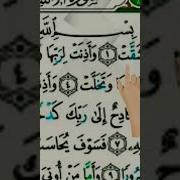 بِسْمِ ٱللَّهِ
شَقَّتْ ١ وَأَذِنَتْ لِرَبِّهَا
وَتَخَلَّتْ ٤ وَأَذِنَتْ
كَادِحٌ إِلَىٰ رَبِّكَ كَدْ
٧ فَسَوْفَ يُحَاسَ
رُورًا ٩ وَأَمَّا مَنْ أُوتِيَ